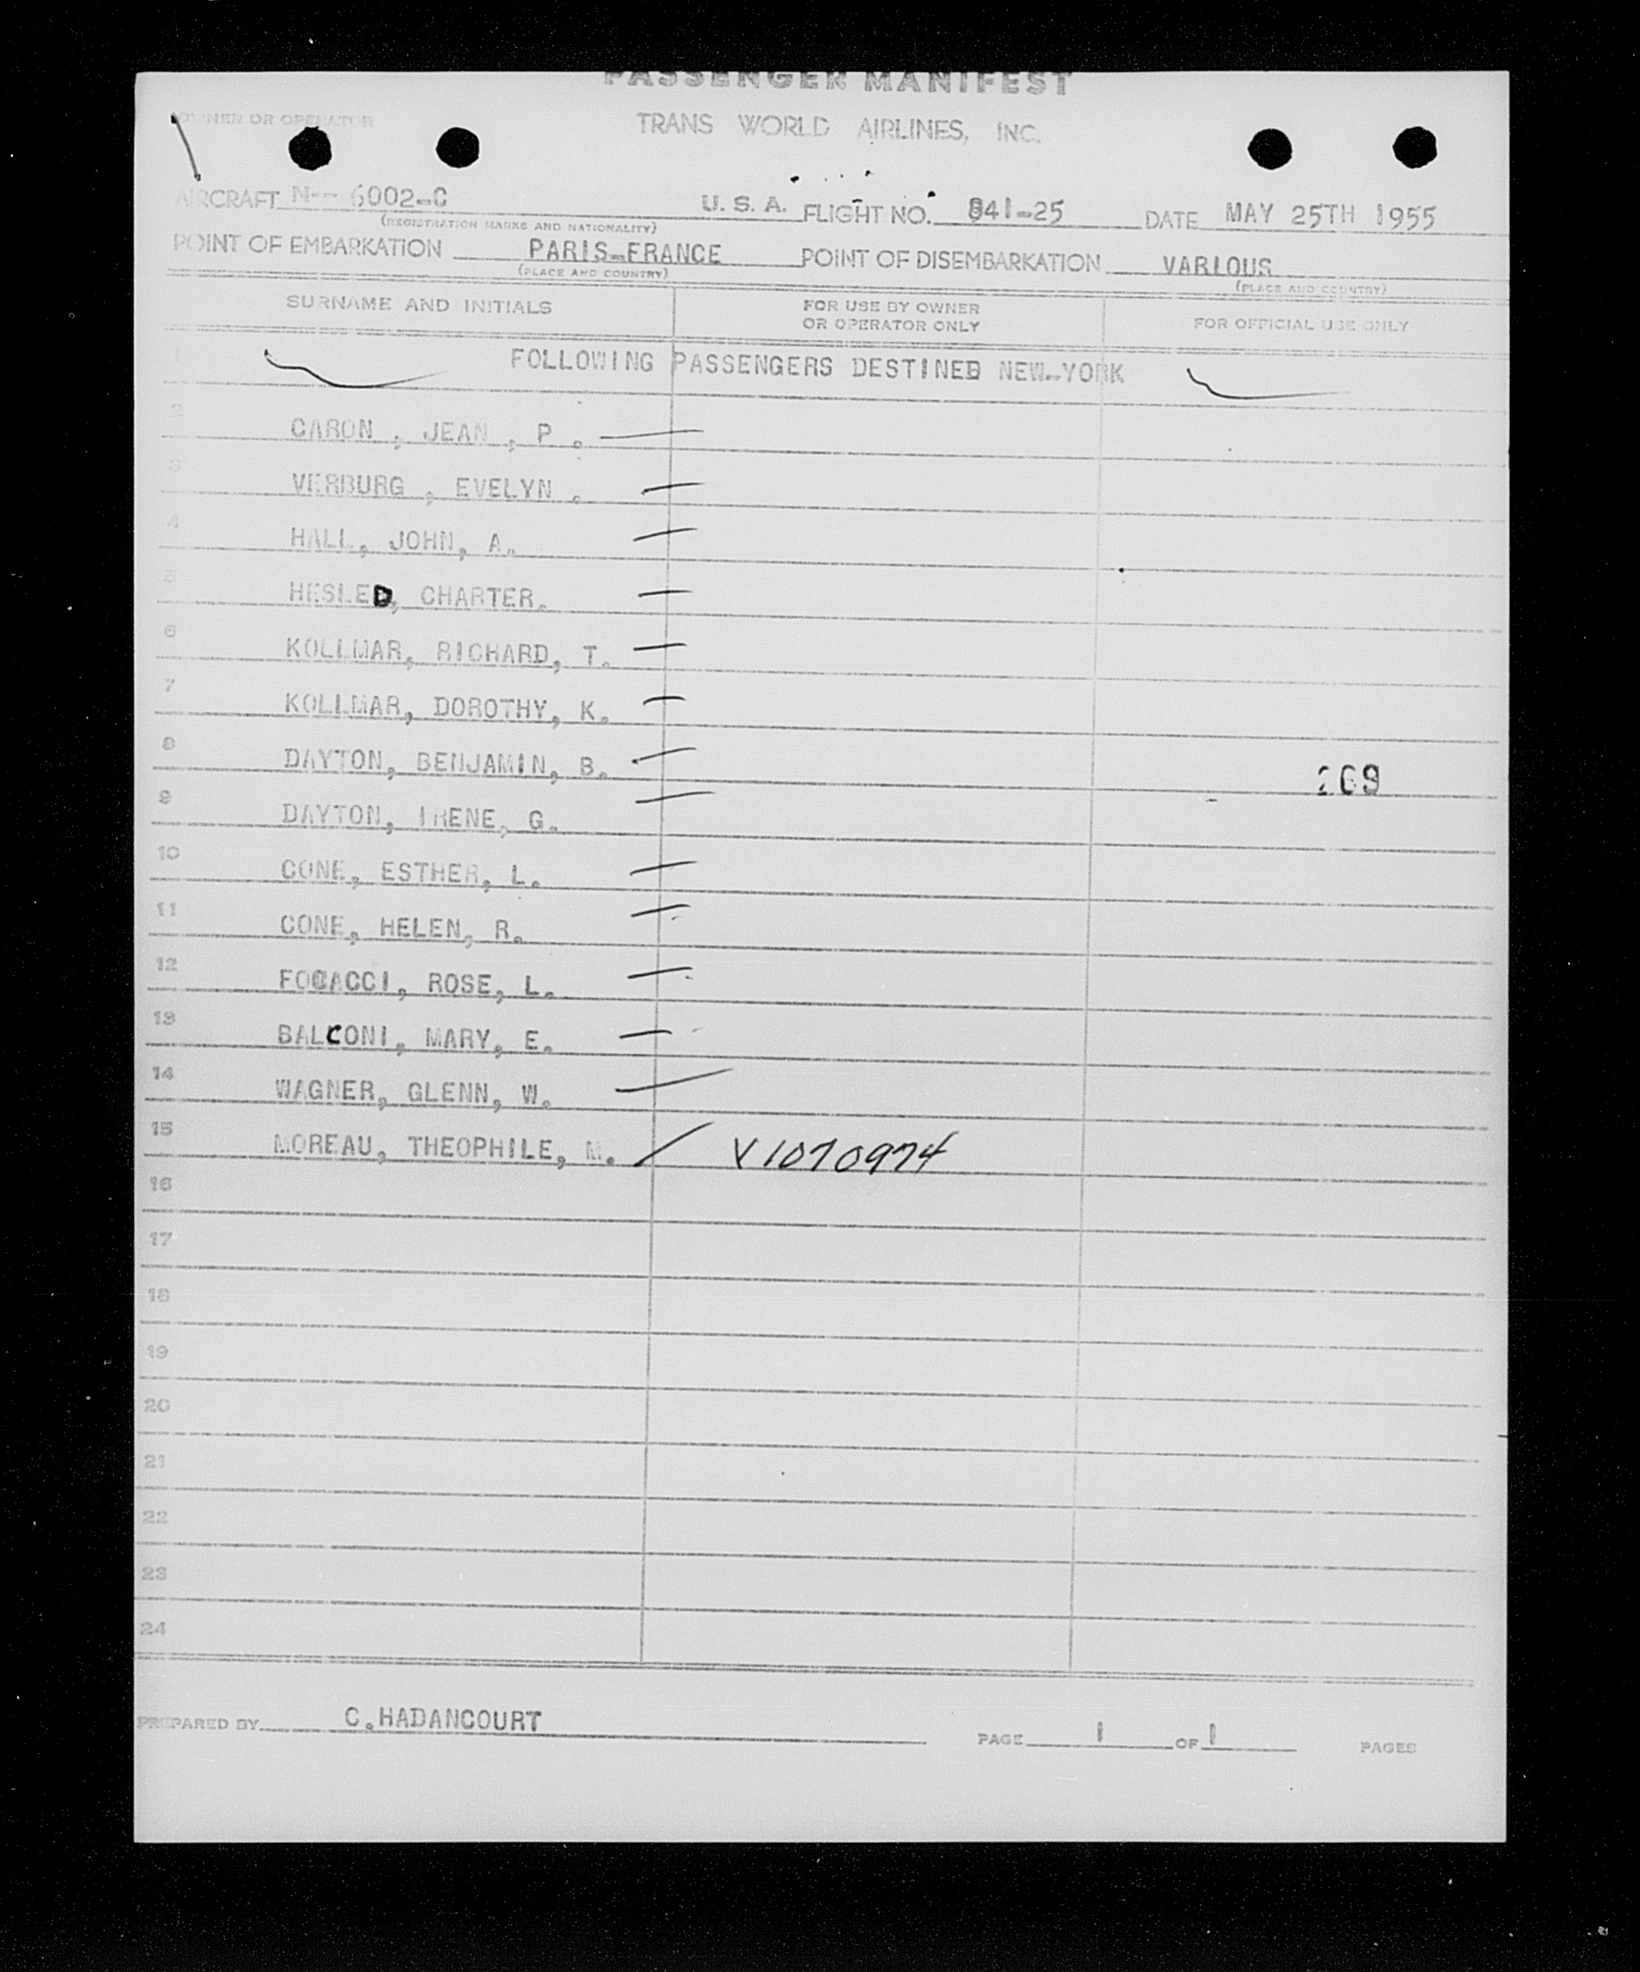 PASSENGER MANIFEST
OWNER OR OPERATOR TRANS WORLD AIRLINES, INC.
AIRCRAFT N-- 6002-C U. S. A. FLIGHT NO. 841-25 DATE MAY 25TH 1955
(REGISTRATION MARKS AND NATIONALITY)
POINT OF EMBARKATION PARIS-FRANCE POINT OF DISEMBARKATION VARIOUS
(PLACE AND COUNTRY) (PLACE AND COUNTRY)
SURNAME AND INITIALS FOR USE BY OWNER OR OPERATOR ONLY FOR OFFICIAL USE ONLY
1 FOLLOWING PASSENGERS DESTINED NEW-YORK
2 CARON , JEAN , P .
3 VERBURG , EVELYN .
4 HALL, JOHN, A.
5 HESLED, CHARTER.
6 KOLLMAR, RICHARD, T.
7 KOLLMAR, DOROTHY, K.
8 DAYTON, BENJAMIN, B. 269
9 DAYTON, IRENE, G.
10 CONE, ESTHER, L.
11 CONE, HELEN, R.
12 FOCACCI, ROSE, L.
13 BALCONI, MARY, E.
14 WAGNER, GLENN, W.
15 MOREAU, THEOPHILE, M. V1070974
16
17
18
19
20
21
22
23
24
PREPARED BY C.HADANCOURT PAGE 1 OF 1 PAGES